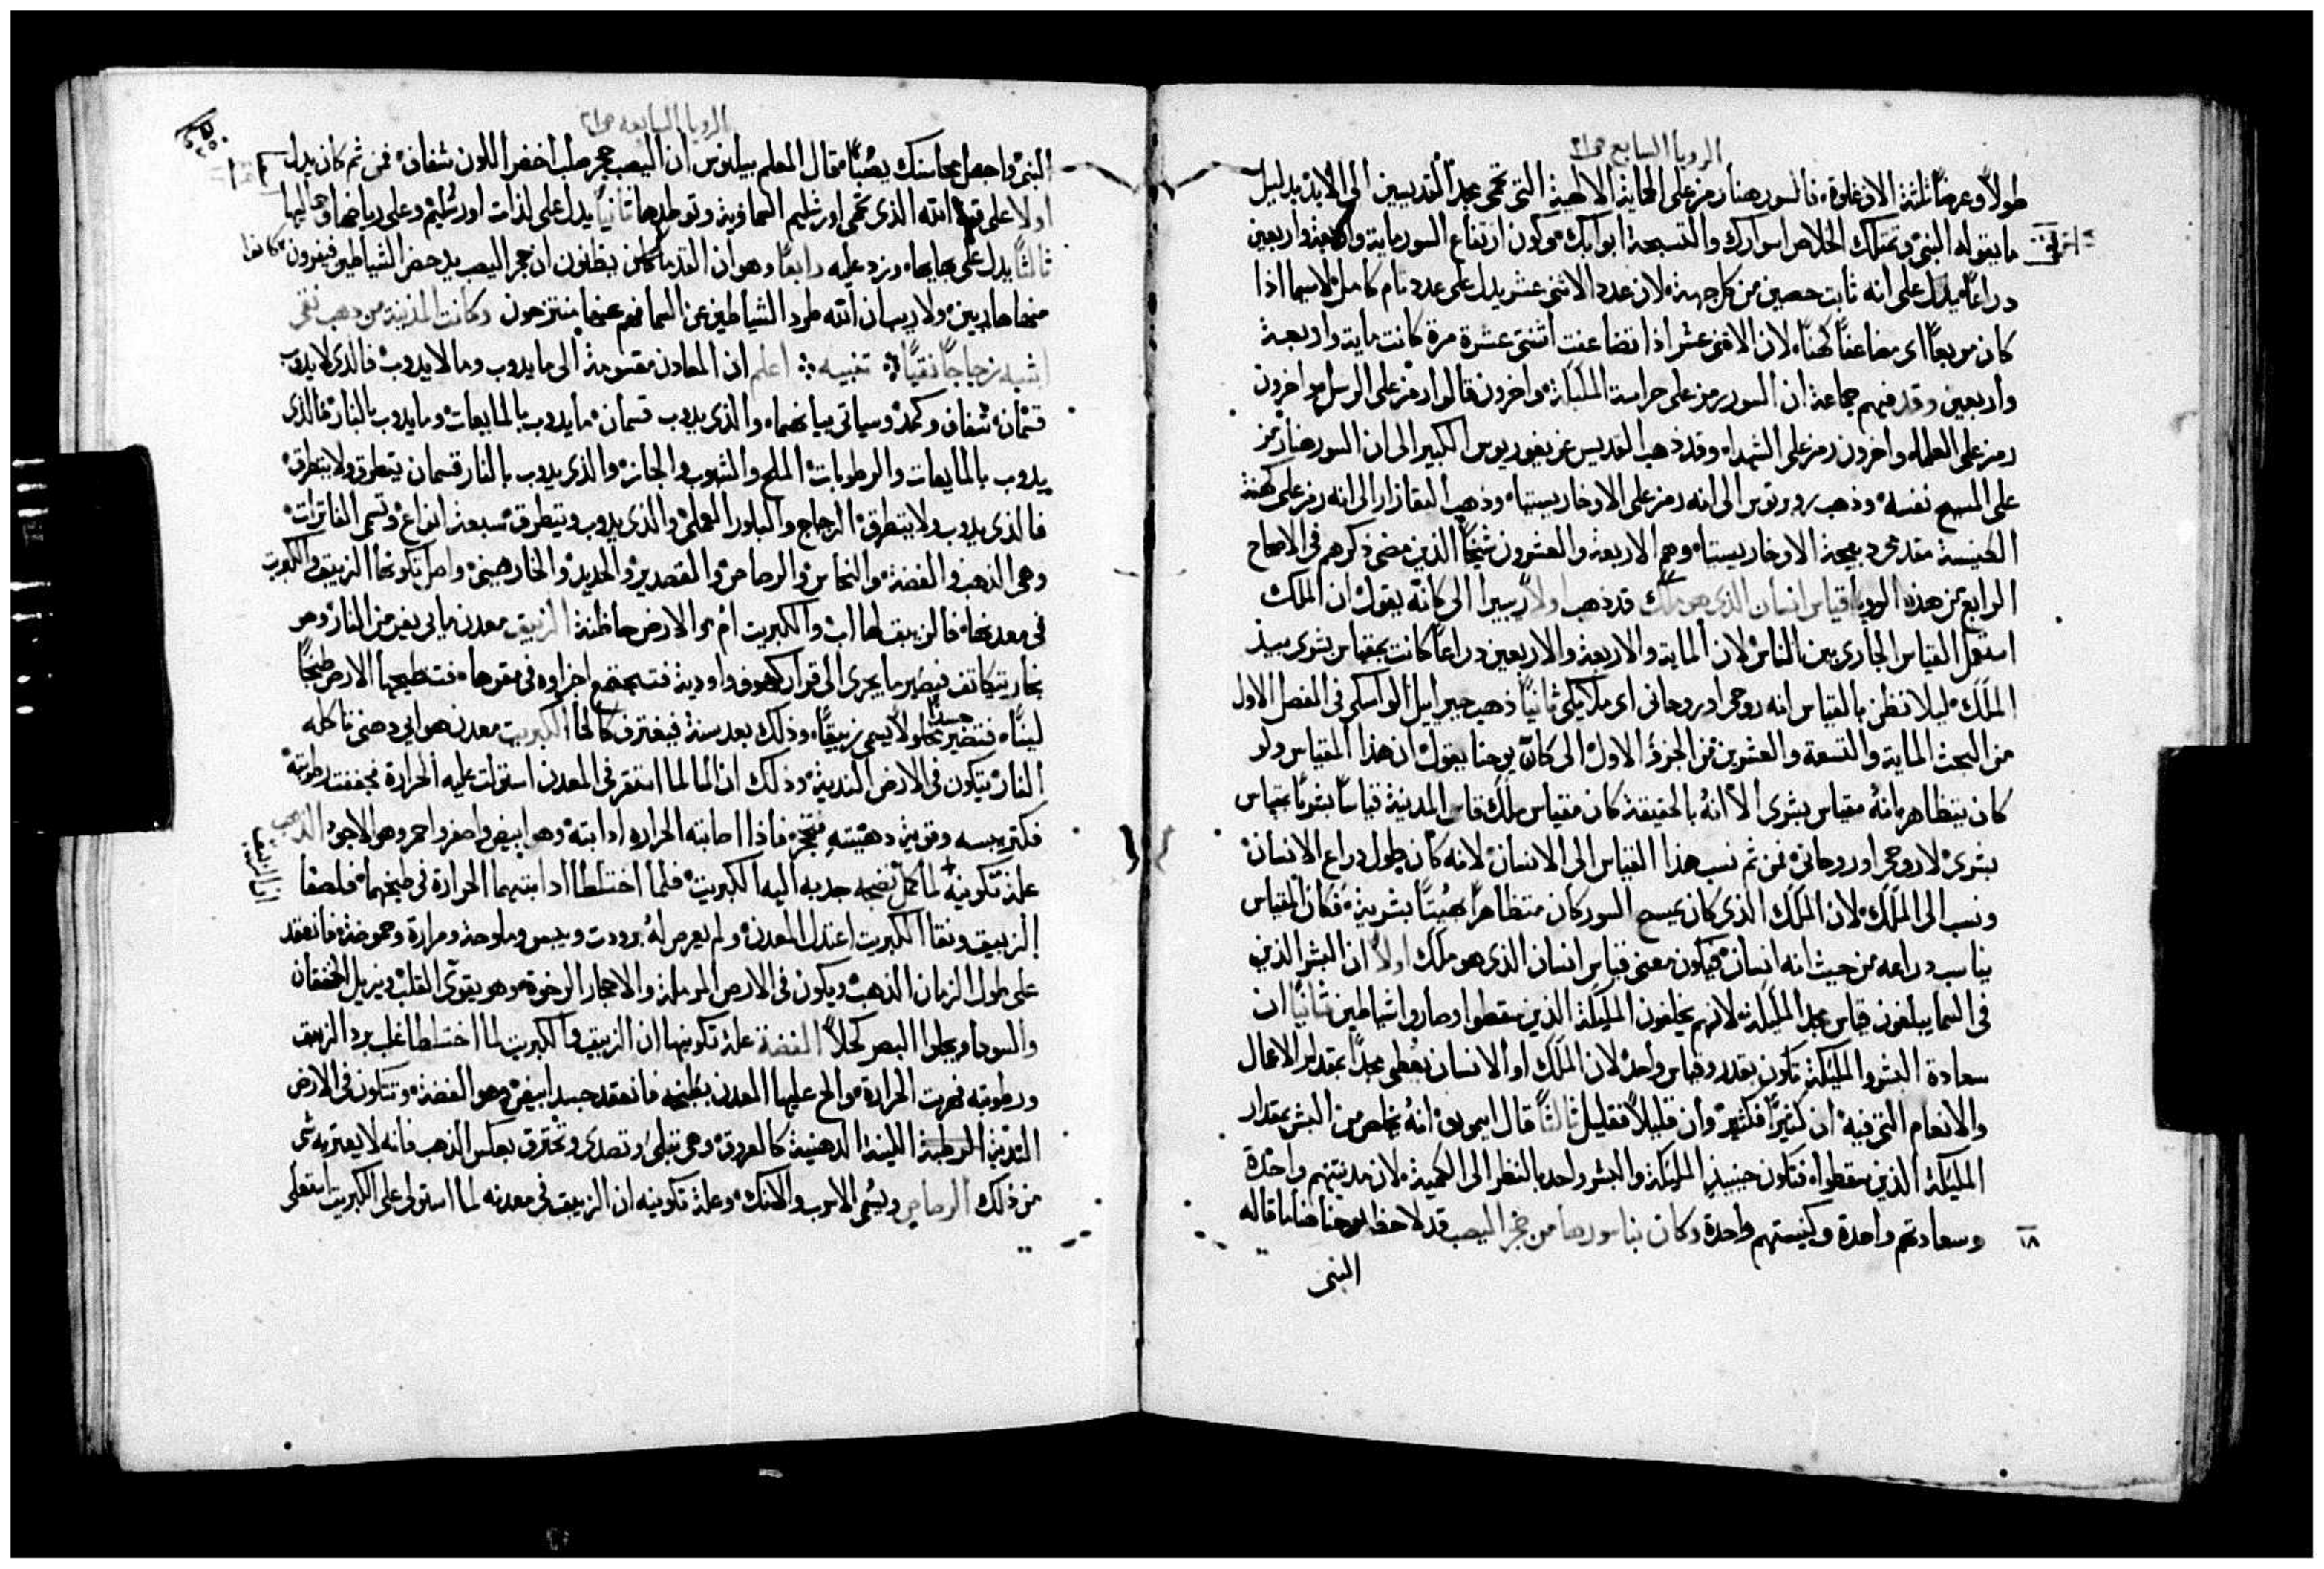 الرويا السابع ص٢١
طولاً وعرضاً ثلثة الاف غلوة فالسور هنا رمز على الحماية الالهية التي تحمى مجد القديسين الى الابد بدليل
ما يقوله النبي وتمتلك الخلاص اسوارك والتسبحة ابوابك وكون ارتفاع السور ماية واربعة واربعين
دراعاً يدل على انه ثابت حصين من كل جهة لان عدد الاثنى عشر يدل على عدد تام كامل لاسيما اذا
كان مربعاً اى مضاعفاً كهنا لان الاثنى عشر اذا تضاعفت اثنتى عشرة مرة كانت ماية واربعة
واربعين وقد فهم جماعة ان السور رمز على حراسة الملايكة واخرون قالوا رمز على الرسل واخرون
رمز على العلماء واخرون رمز على الشهداء وقد ذهب القديس غريغوريوس الكبير الى ان السور هنا رمز
على المسيح نفسه وذهب روبرتوس الى انه رمز على الاوخاريستيا وذهب القازار الى انه رمز على كهنة
الكنيسة مقدمى ذبيحة الاوخاريستيا وهم الاربعة والعشرون شيخاً الذين مضى ذكرهم في الاصحاح
الرابع من هذه الرويا قياس انسان الذى هو ملاك قد ذهب اولاً ريبيرا الى كانه يقول ان الملك
استعمل القياس الجارى بين الناس لان الماية والاربعة والاربعين دراعاً كانت بمقياس بشرى بيد
الملك ليلا تظن بالقياس انه روحى او روحانى اى ملايكى ثانياً ذهب جبراييل الواسكى في الفصل الاول
من البحث الماية والتسعة والعشرين من الجزء الاول الى كان يوحنا يقول ان هذا المقياس ولو
كان بتظاهره انه مقياس بشرى الا انه بالحقيقة كان مقياس ملك قاس المدينة قياساً بشرياً بمقياس
بشرى لا روحى او روحانى فمن ثم نسب هذا القياس الى الانسان لانه كان بطول دراع الانسان
ونسب الى الملك لان الملك الذى كان يمسح السور كان متظاهراً بهيئة بشرية فكان القياس
يناسب دراعه من حيث انه انسان فيكون معنى قياس انسان الذى هو ملك اولاً ان البشر الذين
في السما يبلغون قياس مجد الملايكة لانهم يخلفون الملايكة الذين سقطوا وصاروا شياطين ثانياً ان
سعادة البشر والملايكة تكون بقدر وقياس واحد لان الملك او الانسان يعطى مجداً بمقدار الاعمال
والانعام التي فيه ان كثيراً فكثير وان قليلاً فقليل ثالثاً قال ايمو بان انه يخلص من البشر بمقدار
الملايكة الذين سقطوا فتكون حينيذ الملايكة والبشر واحد بالنظر الى الكمية لان مدينتهم واحدة
وسعادتهم واحدة وكنيستهم واحدة وكان بنا سورها من حجر اليصب قد لاحظ يوحنا هنا ما قاله
١٨
النبى
الرويا السابعه ص٢١
النبى واجعل محاسنك يصباً فقال المعلم بيلينوس ان اليصب حجر صلب اخضر اللون شفاف فمن ثم كان يدل
اولاً على قوة الله الذى تحمى اورشليم السماوية وتوطدها ثانياً يدل على لذات اورشليم وعلى رياضها وجمالها
ثالثاً يدل على بهايها ويزد عليه رابعاً وهو ان القدما كان يظنون ان حجر اليصب يدحض الشياطين فيفرون كانوا
منها هاربين ولا ريب ان الله طرد الشياطين من السما فهم عنها منتزحون وكانت المدينة من دهب نقى
اشبه زجاجاً نقياً تنبيه اعلم ان المعادن مقسومة الى ما يدوب وما لا يدوب فالذى لا يدوب
قسمان شفاف وكمد وسياتي بيانهما والذى يدوب قسمان ما يدوب بالمايعات وما يدوب بالنار فالذى
يدوب بالمايعات والرطوبات الملح والشبوب والجاز والذى يدوب بالنار قسمان يتطرق ولا يتطرق
فالذى يدوب ولا يتطرق الزجاج والبلور العملى والذى يدوب ويتطرق سبعة انواع وتسمى الفلزات
وهى الذهب والفضة والنحاس والرصاص والقصدير والحديد والخارصينى واصل تكونها الزيبق والكبريت
في معدنها فالزيبق لها اب والكبريت ام والارض حاضنة الزيبق معدن مايى يفر من النار وهو
بخار يتكاثف فيصير ما يجرى الى قرار كهوف واودية فتجتمع اجزاوه في مقرها فتطبخها الارض طبخاً
ليناً فتصير جسداً محلولاً يسمى زيبقاً وذلك بعد سنة فيغترف كالما الكبريت معدن هوايى دهنى تاكله
النار يتكون في الارض الندية وذلك ان الما لما استقر في المعدن استولت عليه الحرارة فجففت رطوبته
فكثر يبسه وقويت دهنيته فتحجر فاذا اصابته الحرارة ادابته وهو ابيض واصفر واحمر وهو الاجود الذهب
علة تكوينه لما كمل نضجه جدبه اليه الكبريت فلما اختلطا ادابتهما الحرارة في طبخهما فلصفا
الزيبق ونقا الكبريت اعتدل المعدن ولم يعرض له برودت ويبس وملوحة ومرارة وحموضة فانعقد
على طول الزمان الذهب ويكون في الارض الرملة والاحجار الرخوة وهو يقوى القلب ويزيل الخفقان
والسودا ويجلوا البصر كحلاً الفضة علة تكوينها ان الزيبق والكبريت لما اختلطا غلب برد الزيبق
ورطوبته فهربت الحرارة والح عليها المعدن بطبخه فانعقد جسد ابيض وهو الفضة وتتكون في الارض
الندية الرطبة اللينة الدهنية كالعروق وهى تبلى وتصدى وتحترق بعكس الذهب فانه لا يعتريه شى
من ذلك الرصاص ويسمى الاسرب والانك وعلة تكوينه ان الزيبق في معدنه لما استولى على الكبريت استعلى